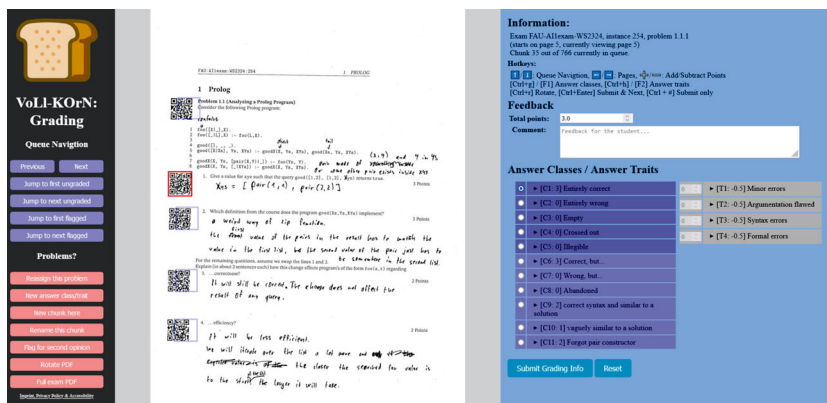 VoLl-KOrN:
Grading
Queue Navigtion
Previous Next
Jump to first ungraded
Jump to next ungraded
Jump to first flagged
Jump to next flagged
Problems?
Reassign this problem
New answer class/trait
New chunk here
Rename this chunk
Flag for second opinion
Rotate PDF
Full exam PDF
Imprint, Privacy Policy & Accessibility
FAU-AI1exam-WS2324:254 1 PROLOG
1 Prolog
Problem 1.1 (Analyzing a Prolog Program)
Consider the following Prolog program:
contains
1 foo([X|_],X).
2 foo([_|L],X) :- foo(L,X).
4 good([],_,_).
5 good([X|Xs], Ys, XYs) :- goodX(X, Ys, XYs), good(Xs, Ys, XYs).
1. Give a value for xys such that the query good([1,2], [1,2], Xys) returns true.
3 Points
Xys = [ pair(1,1), pair(2,2) ]
2. Which definition from the course does the program good(Xs,Ys,XYs) implement?
3 Points
a weird way of zip function.
first
the value of the pairs in the result has to match the
value in the first list, but the second value of the pair just has to
be somewhere in the second list.
For the remaining questions, assume we swap the lines 1 and 2.
Explain (in about 2 sentences each) how this change affects programs of the form foo(a,X) regarding
3. ...correctness?
2 Points
It will still be correct. The change does not affect the
result of any query.
4. ...efficiency?
2 Points
It will be less efficient.
We will iterate over the list a lot more and
the closer the searched for value is
to the start, the longer it will take.
Information:
Exam FAU-AI1exam-WS2324, instance 254, problem 1.1.1
(starts on page 5, currently viewing page 5)
Chunk 35 out of 766 currently in queue.
Hotkeys:
Queue Navigation, Pages, Add/Subtract Points
[Ctrl+g] / [F1] Answer classes, [Ctrl+h] / [F2] Answer traits
[Ctrl+r] Rotate, [Ctrl+Enter] Submit & Next, [Ctrl + #] Submit only
Feedback
Total points: 3.0
Comment: Feedback for the student...
Answer Classes / Answer Traits
[C1: 3] Entirely correct
[C2: 0] Entirely wrong
[C3: 0] Empty
[C4: 0] Crossed out
[C5: 0] Illegible
[C6: 3] Correct, but...
[C7: 0] Wrong, but...
[C8: 0] Abandoned
[C9: 2] correct syntax and similar to a
solution
[C10: 1] vaguely similar to a solution
[C11: 2] Forgot pair constructor
0 [T1: -0.5] Minor errors
0 [T2: -0.5] Argumentation flawed
0 [T3: -0.5] Syntax errors
0 [T4: -0.5] Formal errors
Submit Grading Info Reset